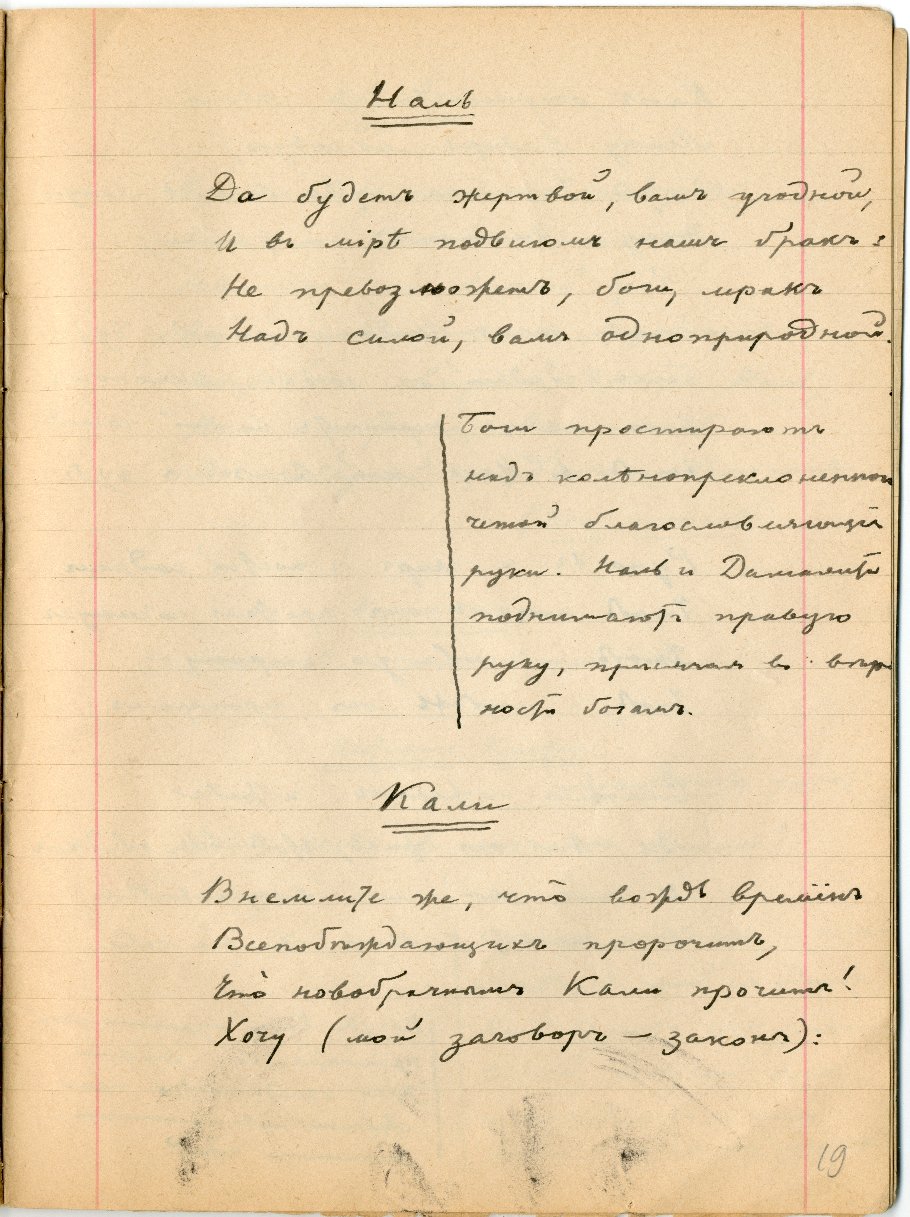 Наль
Да будетъ жертвой, вамъ угодной,
И въ мірѣ подвигомъ нашъ бракъ:
Не превозможетъ, боги, мракъ
Надъ силой, вамъ одноприродной.
Боги простираютъ
надъ колѣнопреклоненной
четой благословляющія
руки. Наль и Дамаянти
поднимаютъ правую
руку, присягая въ вѣр
ности богамъ.
Кали
Внемлите же, что вождь временъ
Всепобѣждающихъ пророчитъ,
Что̀ новобрачнымъ Кали прочитъ!
Хочу (мой заговоръ — законъ):
19